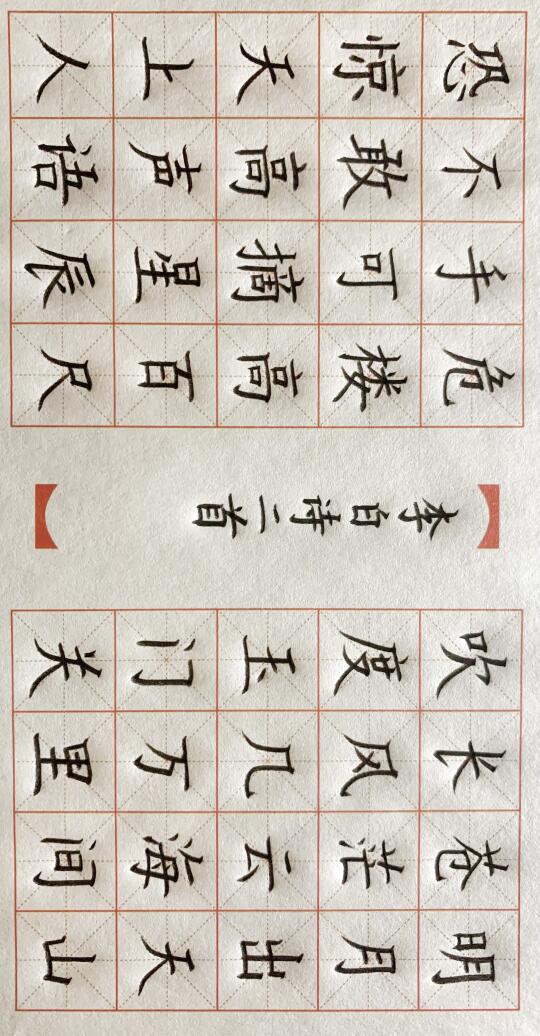 明月出天山
苍茫云海间
长风几万里
吹度玉门关
李白诗二首
危楼高百尺
手可摘星辰
不敢高声语
恐惊天上人